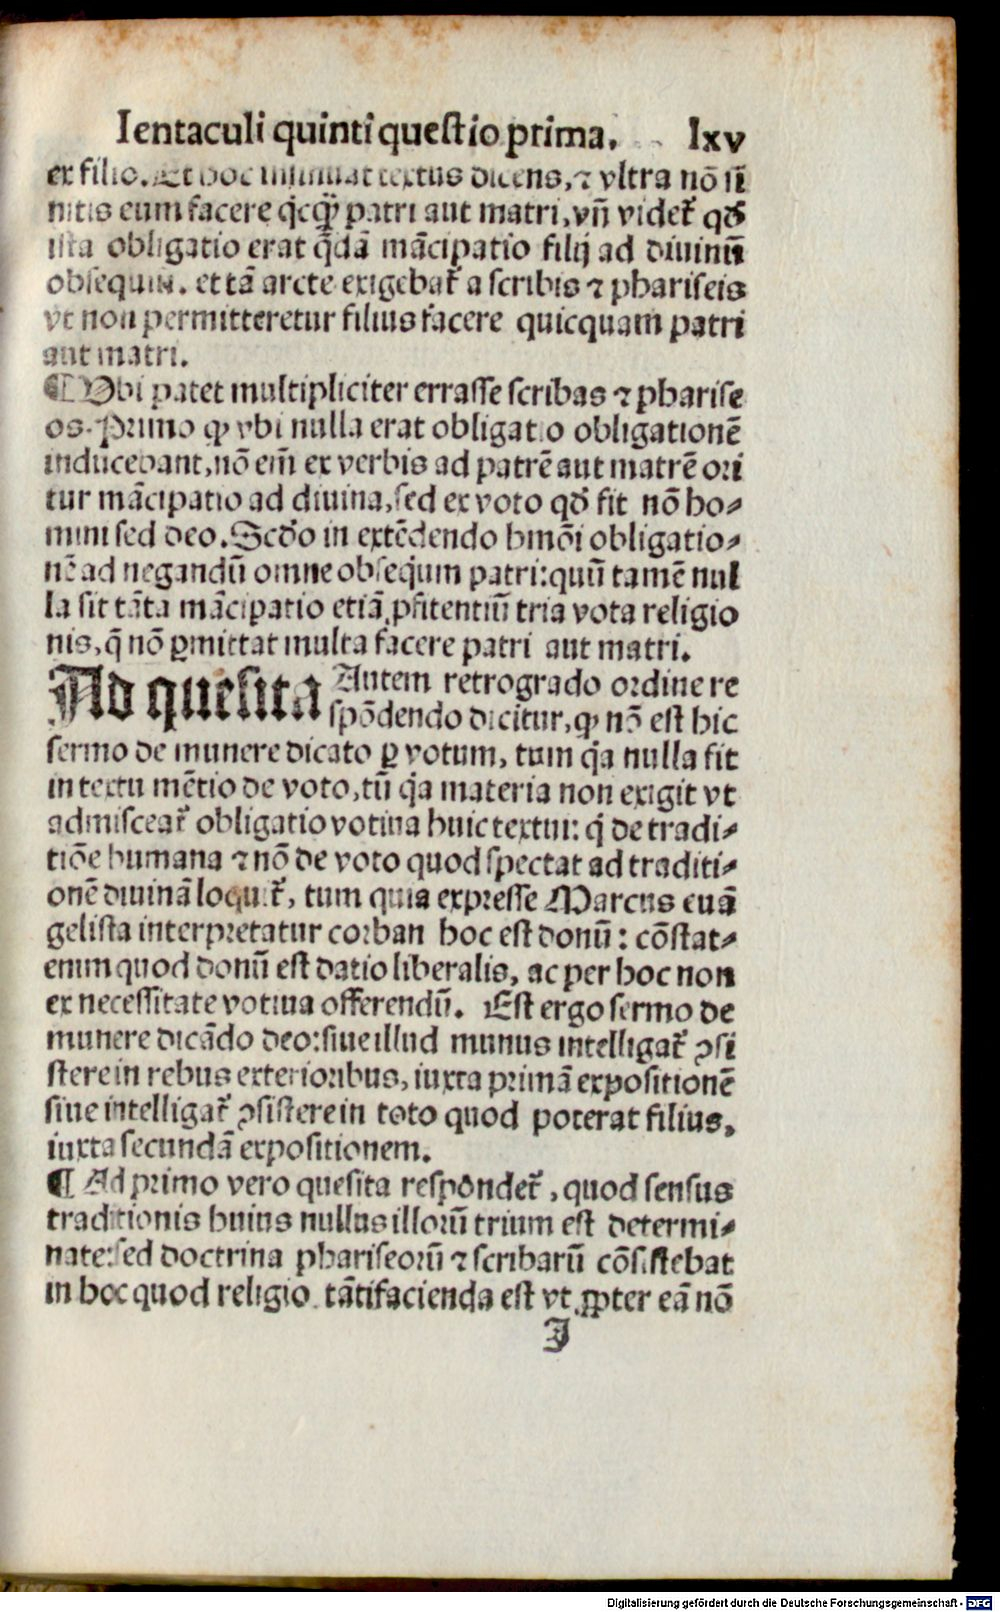 Ientaculi quinti questio prima. lxv
ex filio. Et hoc insinuat textus dicens, ⁊ vltra nõ si
nitis eum facere qͥcqͣꝫ patri aut matri, vñ videt᷑ qđ
ista obligatio erat q̃dã mãcipatio filij ad diuinũ
obsequiũ. et tã arcte exigebat᷑ a scribis ⁊ phariseis
vt non permitteretur filius facere quicquam patri
aut matri.
¶ Vbi patet multipliciter errasse scribas ⁊ pharise
os. Primo ꝙ vbi nulla erat obligatio obligationẽ
inducebant, nõ em̃ ex verbis ad patrẽ aut matrẽ ori
tur mãcipatio ad diuina, sed ex voto qđ fit nõ ho⸗
mini sed deo. Scđo in extẽdendo hmõi obligatio⸗
nẽ ad negandũ omne obseqͥum patri: quũ tamẽ nul
la sit tãta mãcipatio etiã ꝓfitentiũ tria vota religio
nis, q̃ nõ ꝑmittat multa facere patri aut matri.
Ad quesita Autem retrogrado ordine re
spõdendo dicitur, ꝙ nõ est hic
sermo de munere dicato ꝑ votum, tum qͥa nulla fit
in textu mẽtio de voto, tũ qͥa materia non exigit vt
admisceat᷑ obligatio votiua huic textui: qͥ de tradi⸗
tiõe humana ⁊ nõ de voto quod spectat ad traditi⸗
onẽ diuinã loquit᷑, tum quia expresse Marcus euã
gelista interpretatur corban hoc est donũ: cõstat⸗
enim quod donũ est datio liberalis, ac per hoc non
ex necessitate votiua offerendũ. Est ergo sermo de
munere dicãdo deo: siue illud munus intelligat᷑ ꝯsi
stere in rebus exterioribus, iuxta primã expositionẽ
siue intelligat᷑ ꝯsistere in toto quod poterat filius,
iuxta secundã expositionem.
¶ Ad primo vero quesita respõndet᷑, quod sensus
traditionis huius nullus illorũ trium est determi⸗
nate: sed doctrina phariseorũ ⁊ scribarũ cõsistebat
in hoc quod religio tãtifacienda est vt ꝓpter eã nõ
I
Digitalisierung gefördert durch die Deutsche Forschungsgemeinschaft - DFG